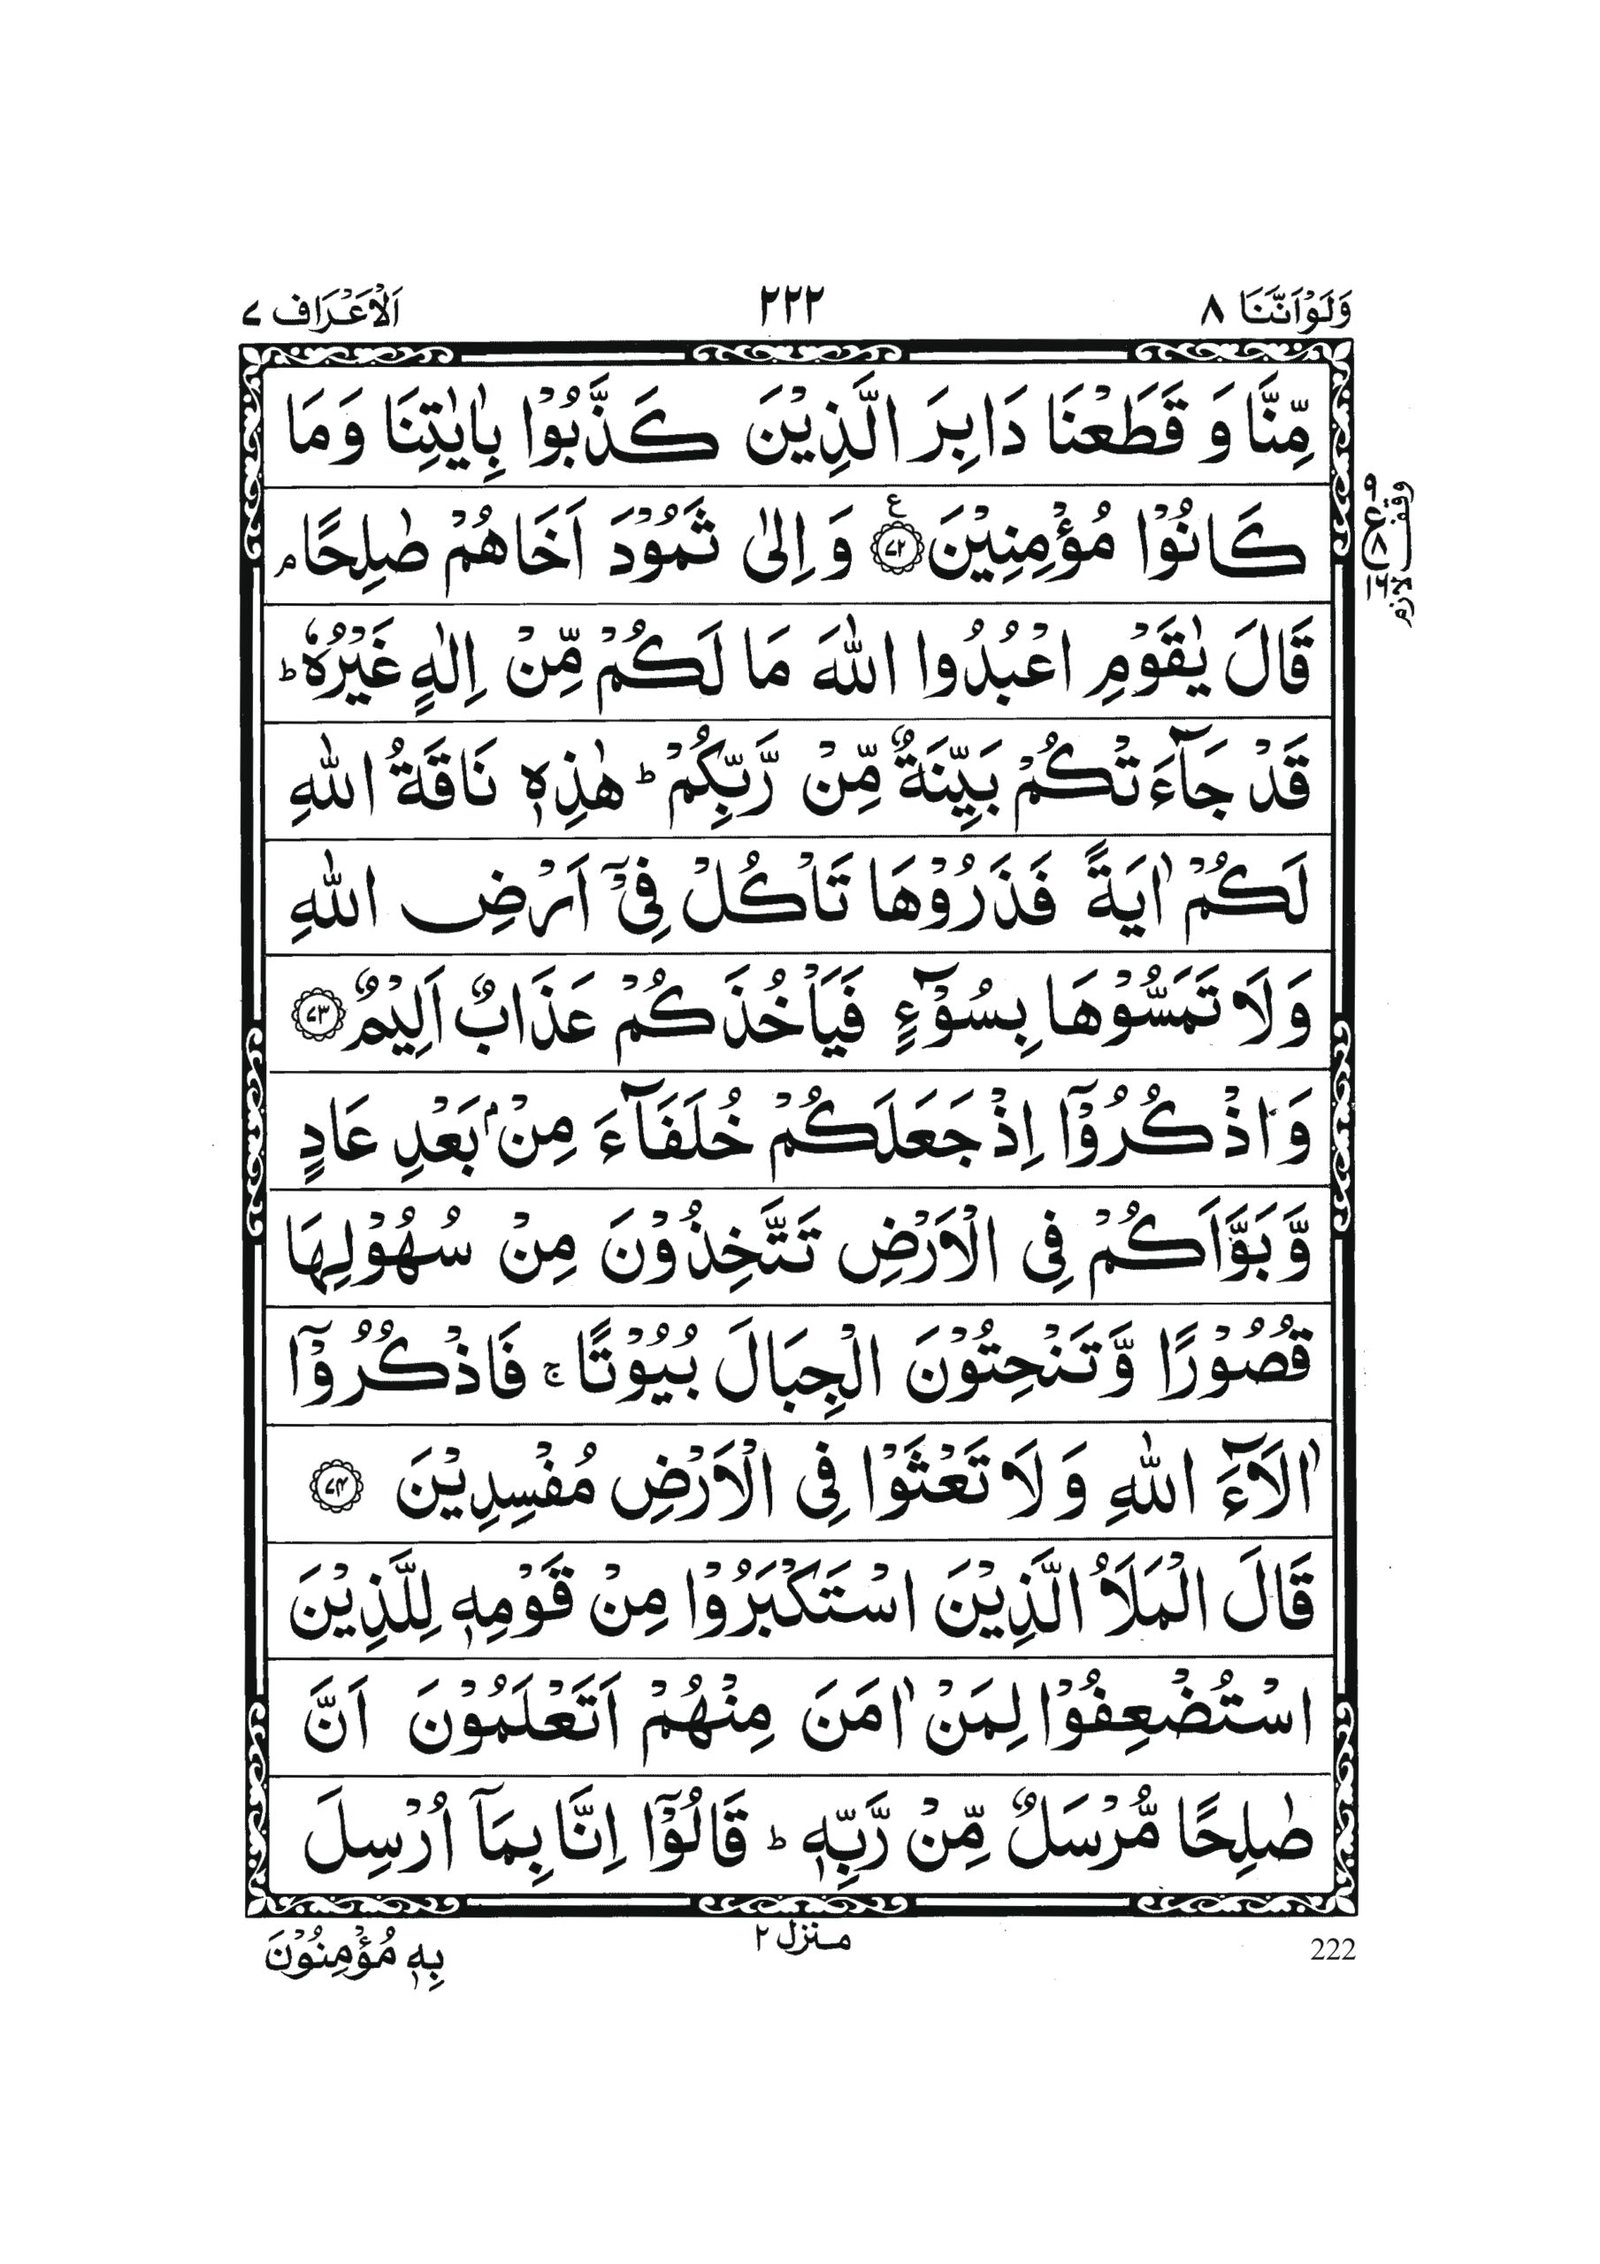 وَلَوْاَنَّنَا ٨
٢٢٢
اَلْاَعْرَاف ٧
مِّنَّا وَ قَطَعْنَا دَابِرَ الَّذِيْنَ كَذَّبُوْا بِاٰيٰتِنَا وَ مَا
كَانُوْا مُؤْمِنِيْنَ ۧ‏﴿٧٢﴾ وَ اِلٰى ثَمُوْدَ اَخَاهُمْ صٰلِحًا ۘ
قَالَ يٰقَوْمِ اعْبُدُوا اللّٰهَ مَا لَكُمْ مِّنْ اِلٰهٍ غَيْرُهٗ ؕ
قَدْ جَآءَتْكُمْ بَيِّنَةٌ مِّنْ رَّبِّكُمْ ؕ هٰذِهٖ نَاقَةُ اللّٰهِ
لَكُمْ اٰيَةً فَذَرُوْهَا تَاْكُلْ فِيْۤ اَرْضِ اللّٰهِ
وَ لَا تَمَسُّوْهَا بِسُوْٓءٍ فَيَاْخُذَكُمْ عَذَابٌ اَلِيْمٌ ﴿٧٣﴾
وَ اذْكُرُوْۤا اِذْ جَعَلَكُمْ خُلَفَآءَ مِنْۢ بَعْدِ عَادٍ
وَّ بَوَّاَكُمْ فِى الْاَرْضِ تَتَّخِذُوْنَ مِنْ سُهُوْلِهَا
قُصُوْرًا وَّ تَنْحِتُوْنَ الْجِبَالَ بُيُوْتًا ۚ فَاذْكُرُوْۤا
اٰلَآءَ اللّٰهِ وَ لَا تَعْثَوْا فِى الْاَرْضِ مُفْسِدِيْنَ ﴿٧٤﴾
قَالَ الْمَلَاُ الَّذِيْنَ اسْتَكْبَرُوْا مِنْ قَوْمِهٖ لِلَّذِيْنَ
اسْتُضْعِفُوْا لِمَنْ اٰمَنَ مِنْهُمْ اَتَعْلَمُوْنَ اَنَّ
صٰلِحًا مُّرْسَلٌ مِّنْ رَّبِّهٖ ؕ قَالُوْۤا اِنَّا بِمَاۤ اُرْسِلَ
وقف لازم
ع ٨ ١٦
بِهٖ مُؤْمِنُوْنَ
منزل ٢
222